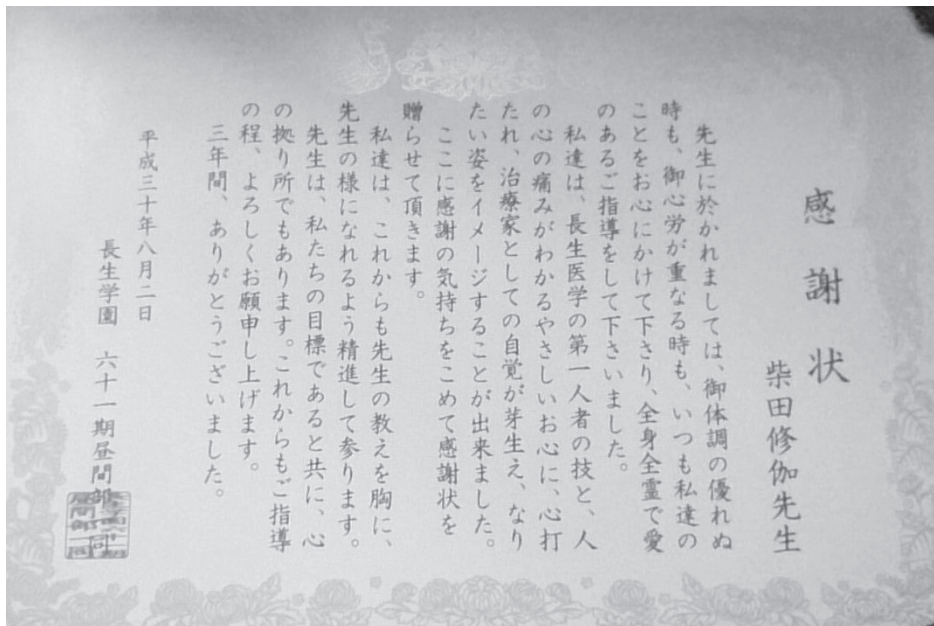 感謝状
柴田修伽先生
先生に於かれましては、御体調の優れぬ
時も、御心労が重なる時も、いつも私達の
ことをお心にかけて下さり、全身全霊で愛
のあるご指導をして下さいました。
私達は、長生医学の第一人者の技と、人
の心の痛みがわかるやさしいお心に、心打
たれ、治療家としての自覚が芽生え、なり
たい姿をイメージすることが出来ました。
ここに感謝の気持ちをこめて感謝状を
贈らせて頂きます。
私達は、これからも先生の教えを胸に、
先生の様になれるよう精進して参ります。
先生は、私たちの目標であると共に、心
の拠り所でもあります。これからもご指導
の程、よろしくお願申し上げます。
三年間、ありがとうございました。
平成三十年八月二日
長生学園 六十一期昼間部一同